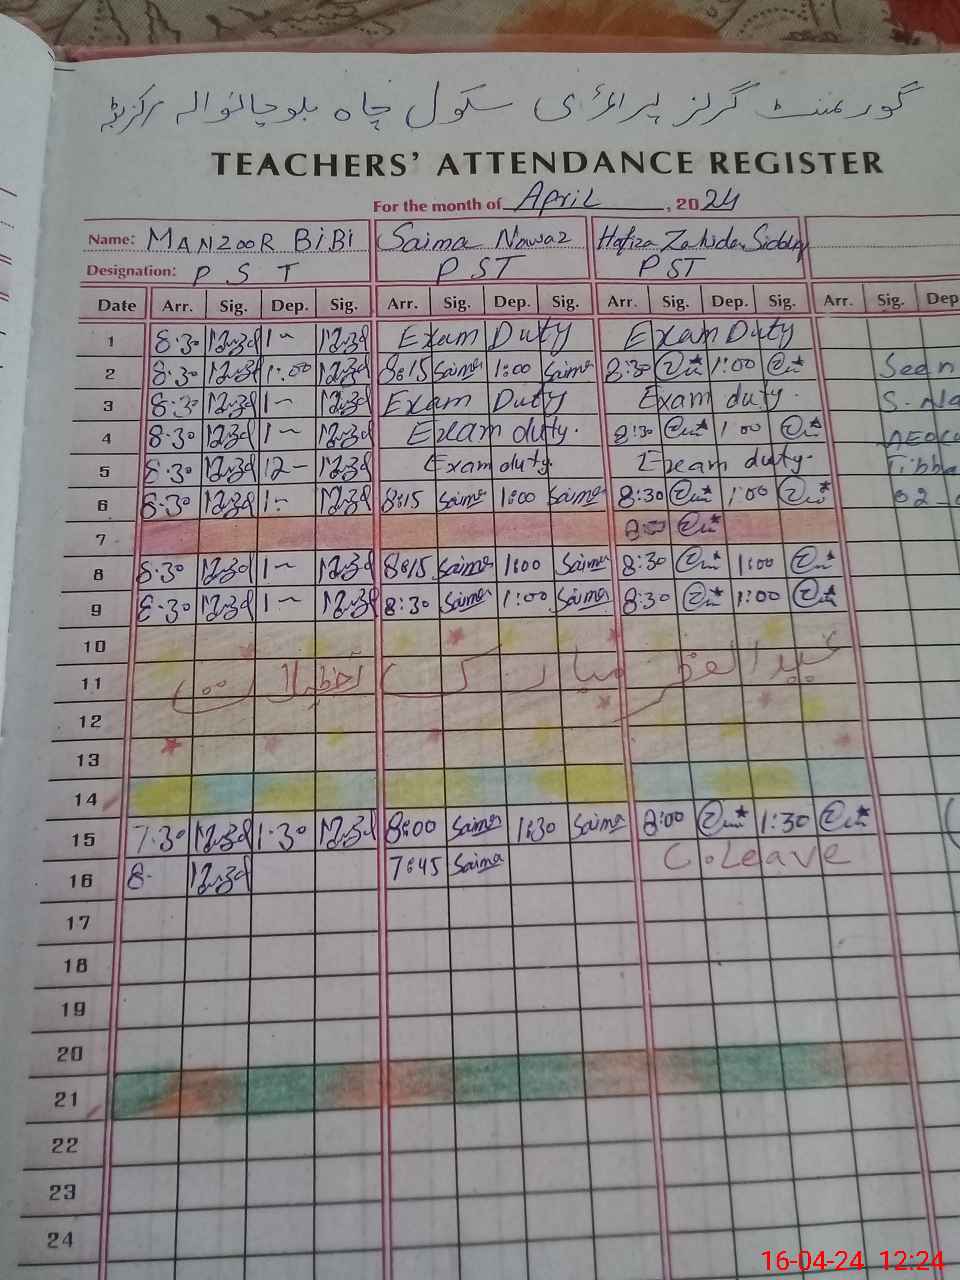 گورنمنٹ گرلز پرائمری سکول چاہ بلوچانوالہ
TEACHERS' ATTENDANCE REGISTER
For the month of April, 2024
Name: MANZOOR BiBi Saima Nawaz Hafiza Zahida Siddiq
Designation: P S T P ST P ST
Date Arr. Sig. Dep. Sig. Arr. Sig. Dep. Sig. Arr. Sig. Dep. Sig. Arr. Sig. Dep
1 8:30 1- Exam Duty Exam Duty
2 8:30 1:00 8:15 Saima 1:00 Saima 8:30 1:00 Seen
3 8:30 1- Exam Duty Exam duty. S. Na
4 8:30 1- Exam duty. 8:30 1 00
5 8:30 12- Exam duty. Exam duty. Tibba
6 8:30 1- 8:15 Saima 1:00 Saima 8:30 1:00 02-
7
8 8:30 1- 8:15 Saima 1:00 Saima 8:30 1:00
9 8:30 1- 8:30 Saima 1:00 Saima 8:30 1:00
10
11 عيد الفطر مبارک تعطیلات
12
13
14
15 7:30 1:30 8:00 Saima 1:30 Saima 8:00 1:30
16 8- 7:45 Saima C. Leave
17
18
19
20
21
22
23
24
16-04-24 12:24